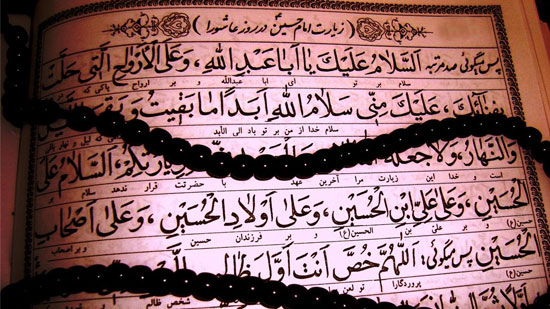 ( زیارت امام حسین ع در روز عاشورا )
پس میگوئی صدمرتبه اَلسَّلامُ عَلَیْكَ یا اَبا عَبْدِ اللهِ، وَعَلَی الْاَرْواحِ الَّتی حَلَّتْ
سلام بر تو ای ابا عبدالله و بر ارواح پاکی که
بِفِنائِكَ، عَلَیْكَ مِنّی سَلامُ اللهِ اَبَداً ما بَقیتُ وَبَقِیَ
سلام خدا از من بر تو باد الی الأبد
وَالنَّهارُ، وَلا جَعَلَهُ اللهُ زِیارَتِكُمْ، اَلسَّلامُ عَلَی
است و خدا این زیارت مرا آخرین عهد با حضرتت قرار ندهد سلام بر
الْحُسَیْنِ، وَعَلی عَلِیِّ ابْنِ الْحُسَیْنِ، وَعَلی اَوْلادِ الْحُسَیْنِ، وَعَلی اَصْحابِ
حسین (ع) و بر علی بن الحسین (ع) و بر فرزندان حسین و بر اصحاب
الْحُسَیْنِ پس میگوئی: اَللّهُمَّ خُصَّ اَنْتَ اَوَّلَ ظالِمٍ
حسین (ع) پروردگارا تو شخص ظالم